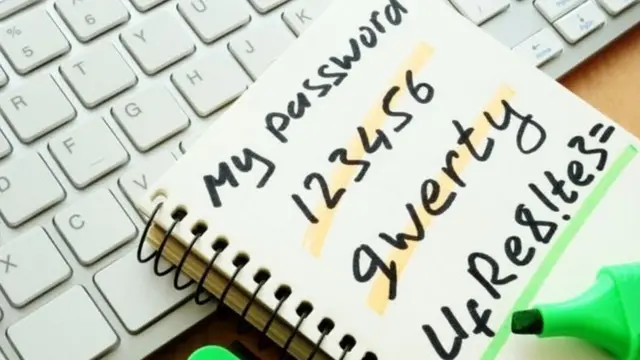 % 5
R T Y U
D F G H J K
X C V
My password
123456
qwerty
UfRe8!te3=